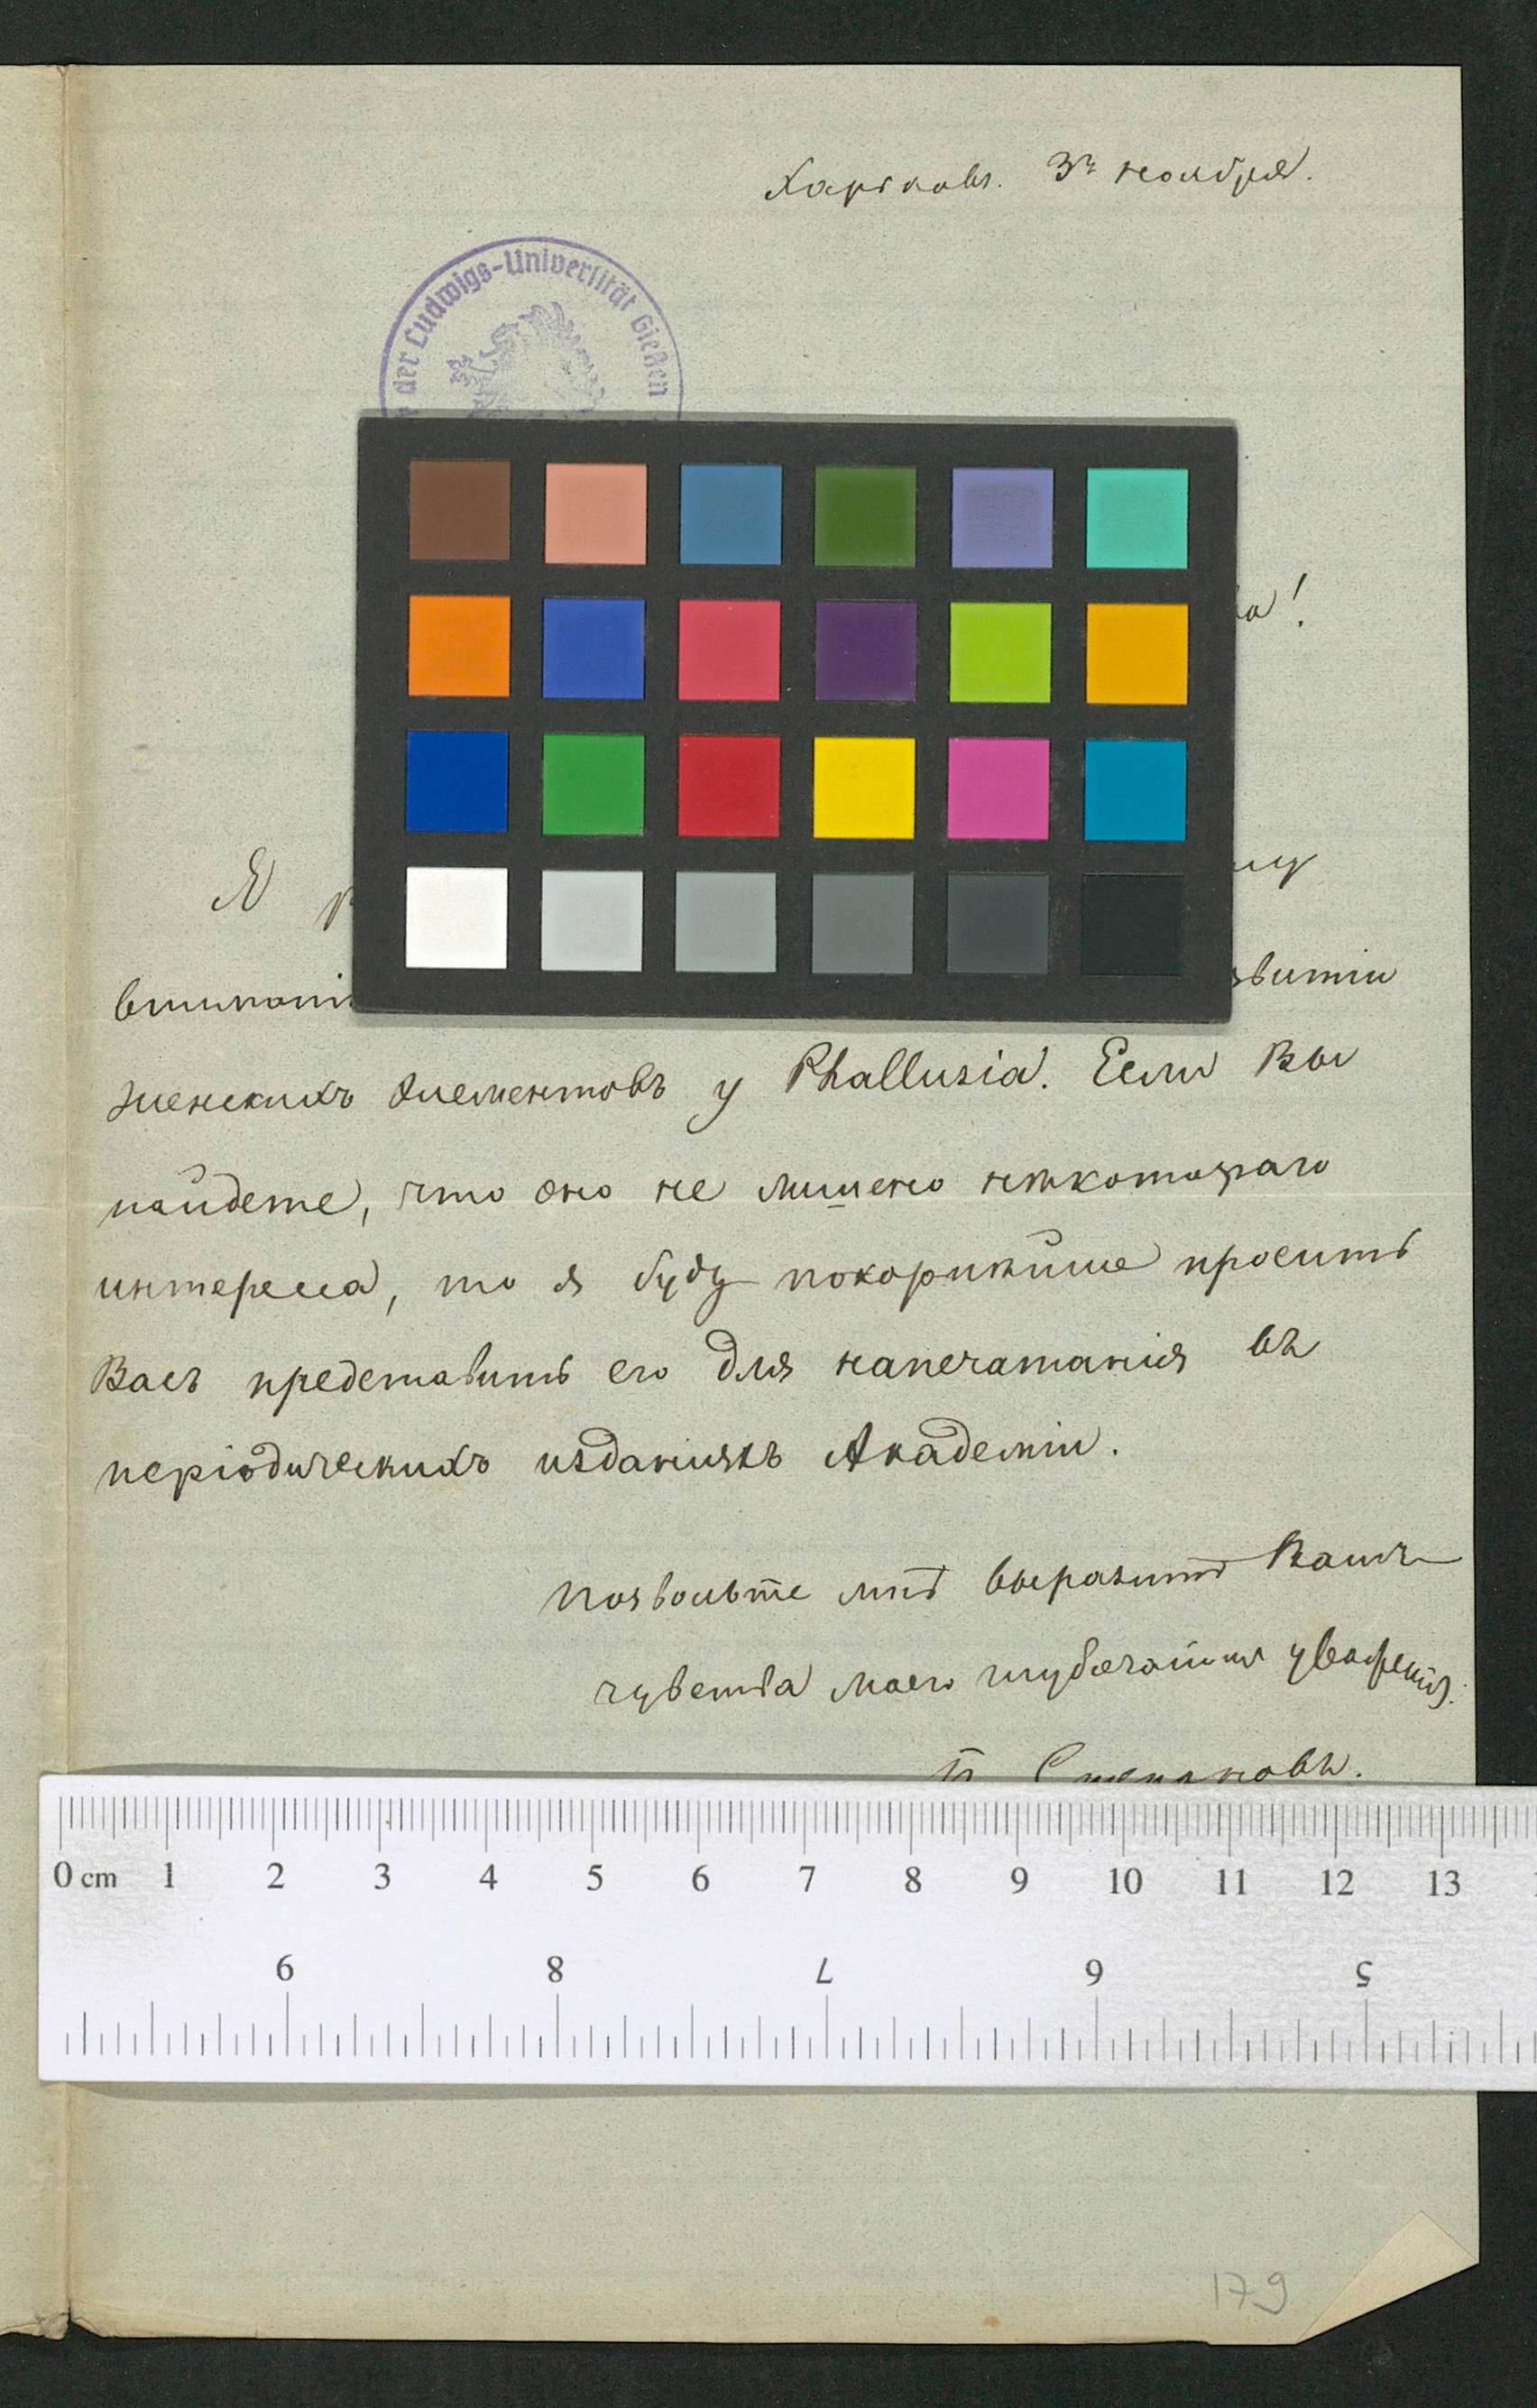 Харьковъ. 3го ноября.
der Ludwigs-Universität Gießen
Я
женскихъ элементовъ у Phallusia. Если Вы
найдете, что оно не лишено нѣкотораго
интереса, то я буду покорнѣйше просить
Васъ представить его для напечатанія въ
періодическихъ изданіяхъ Академіи.
Позвольте мнѣ выразить Вамъ
чувства моего глубочайшаго уваженія.
П Степановъ.
0 cm 1 2 3 4 5 6 7 8 9 10 11 12 13
9 8 7 6 5
179